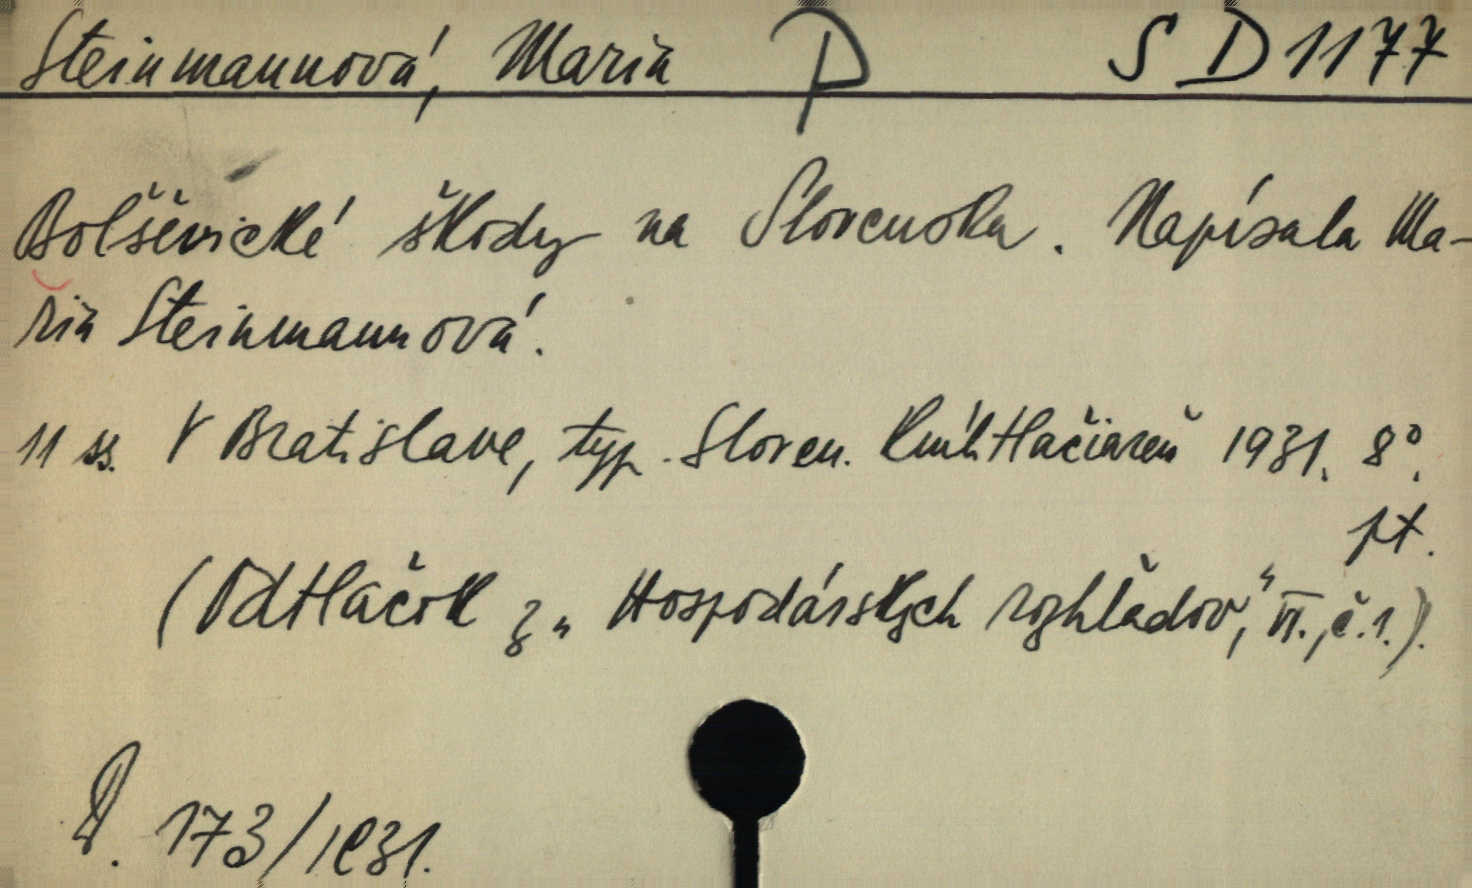 Steinmannová, Maria P SD 1177
Bolševické škody na Slovensku. Napísala Ma-
ria Steinmannová.
11 ss. V Bratislave, typ. Sloven. Kníhtlačiareň 1931. 8°.
pt.
(Odtlačok z „Hospodárskych rozhľadov," VI., č. 1.).
D. 173/1931.